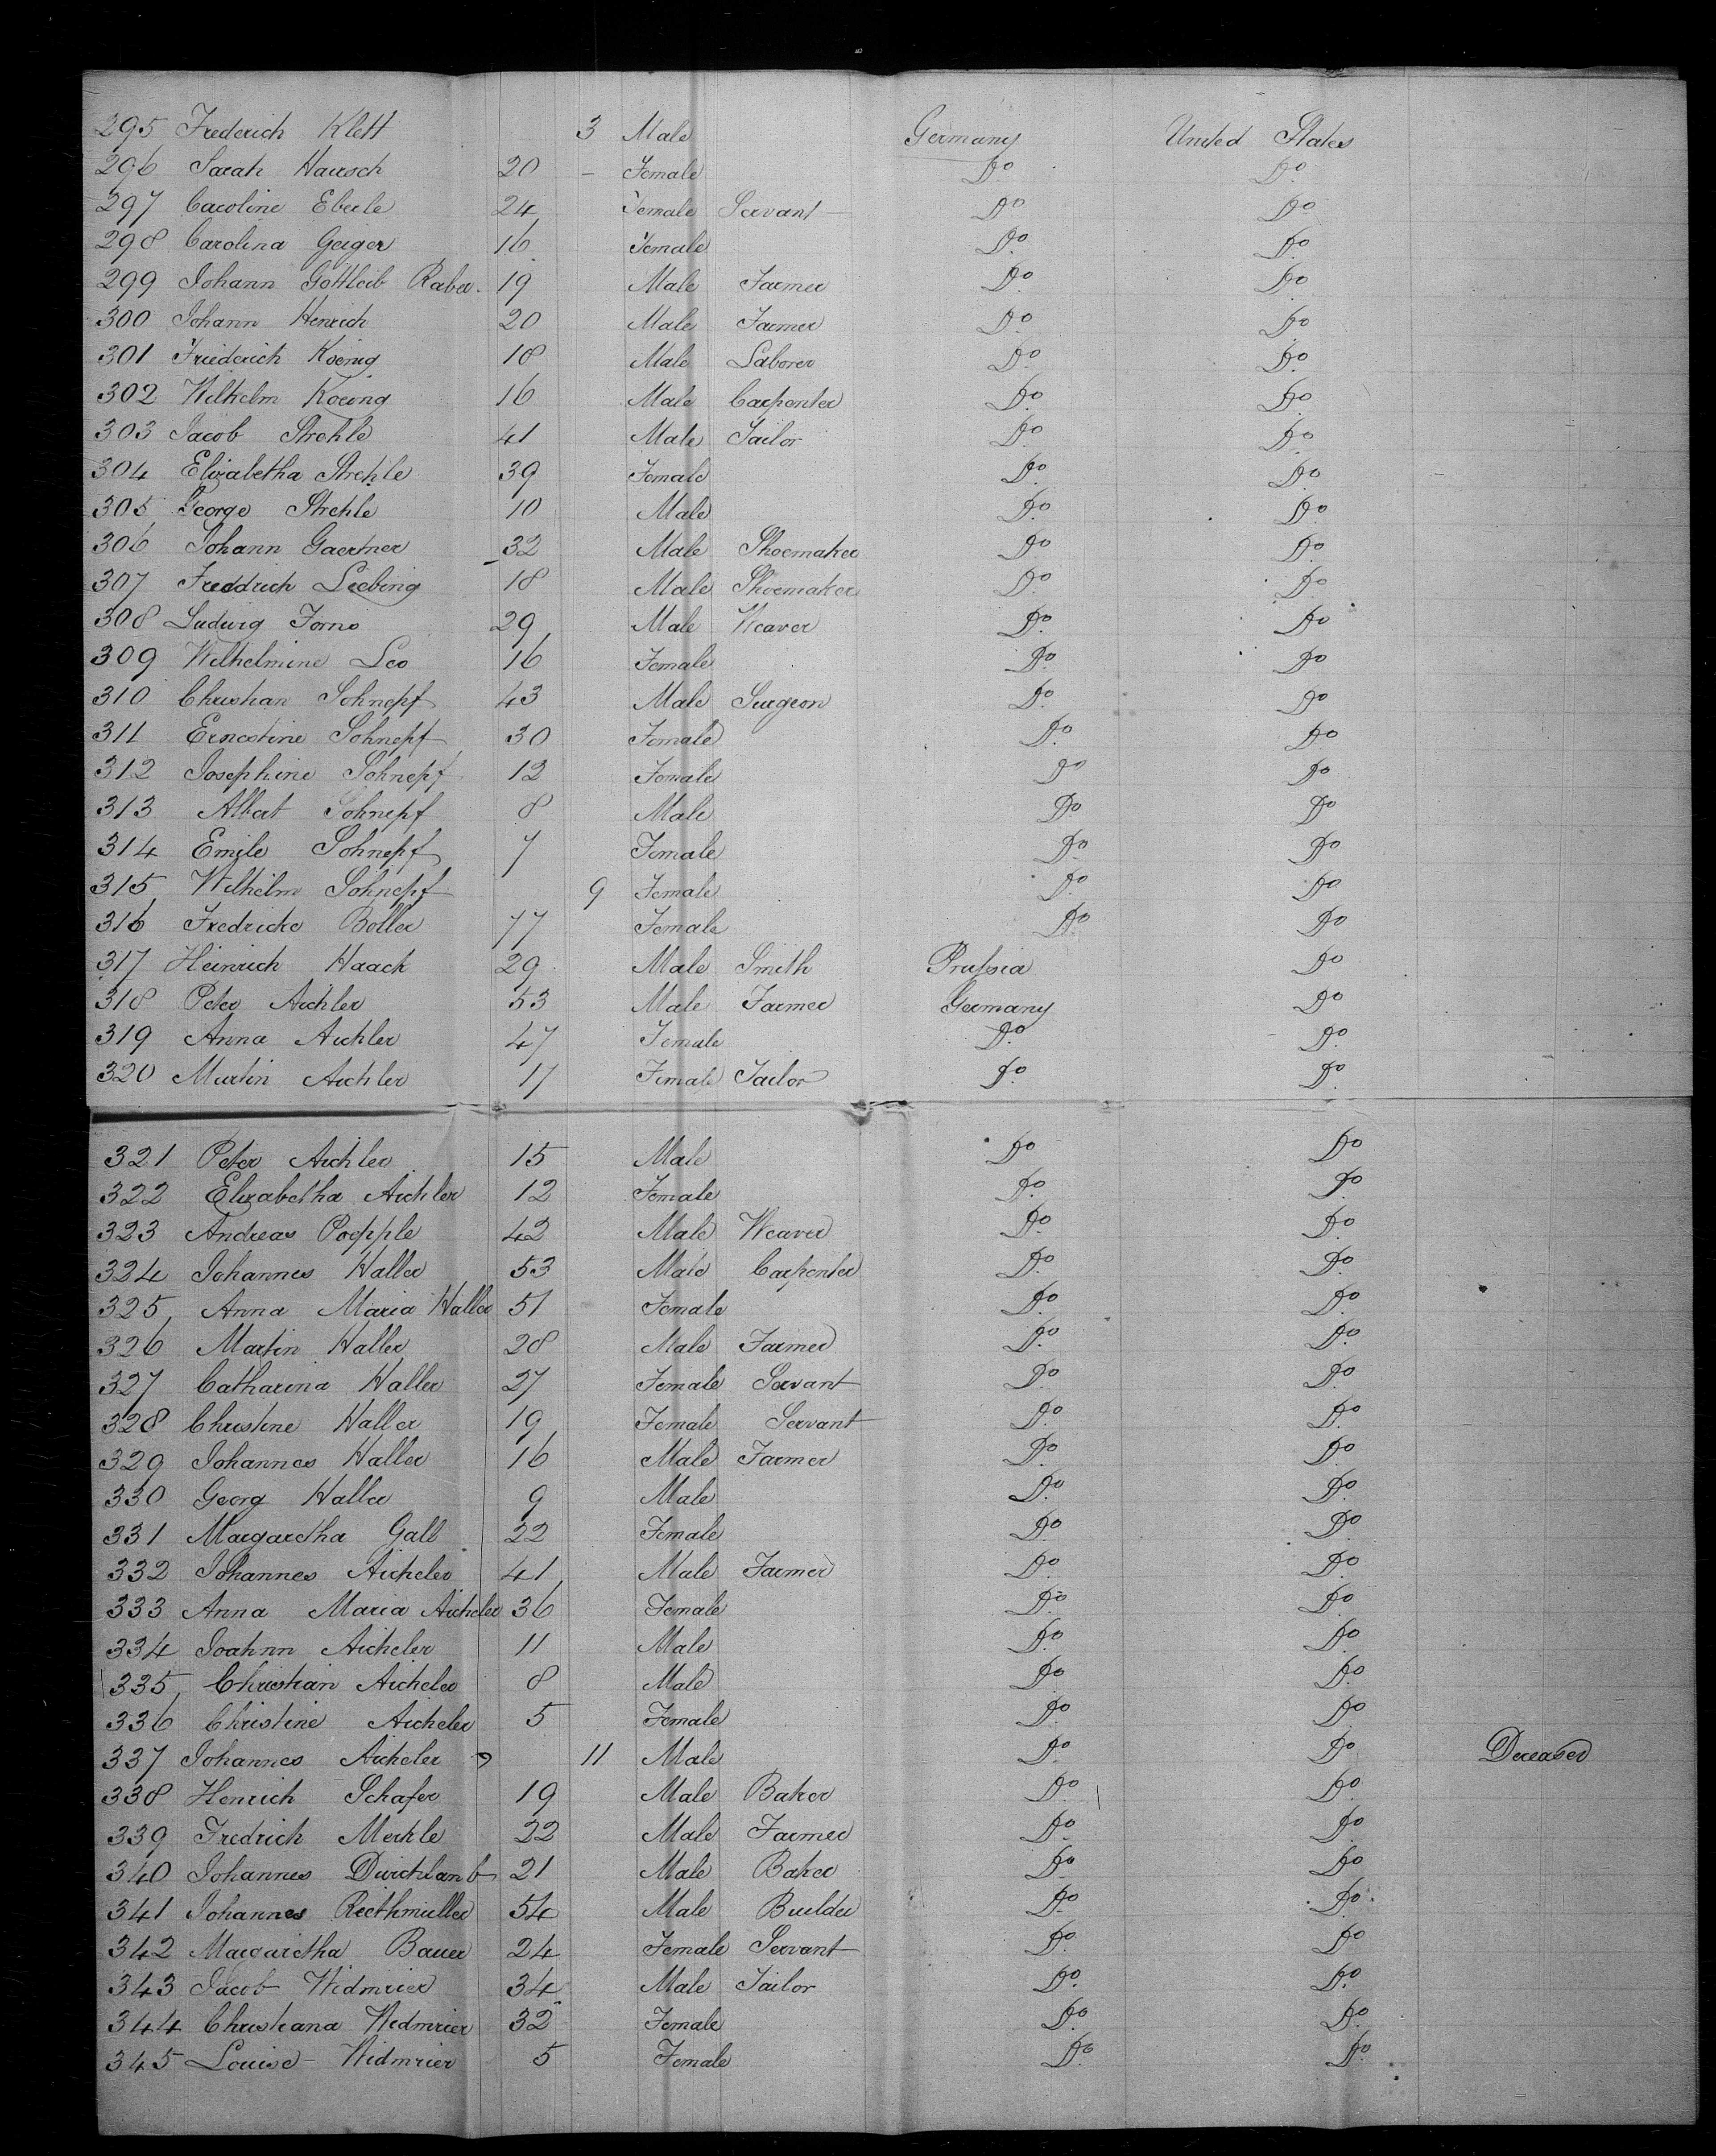 295 Frederich Klett 3 Male Germany United States
296 Sarah Hausch 20 - Female Do Do
297 Caroline Eberle 24 Female Servant Do Do
298 Carolina Geiger 16 Female Do Do
299 Johann Gottleib Raber 19 Male Farmer Do Do
300 Johann Henrich 20 Male Farmer Do Do
301 Friederich Koenig 18 Male Laborer Do Do
302 Wilhelm Koenig 16 Male Carpenter Do Do
303 Jacob Strehle 41 Male Tailor Do Do
304 Elizabetha Strehle 39 Female Do Do
305 George Strehle 10 Male Do Do
306 Johann Gaertner 32 Male Shoemaker Do Do
307 Freddrich Liebing 18 Male Shoemaker Do Do
308 Ludwig Forno 29 Male Weaver Do Do
309 Wilhelmine Leo 16 Female Do Do
310 Christian Schnepf 43 Male Surgeon Do Do
311 Ernestine Schnepf 30 Female Do Do
312 Josephine Schnepf 12 Female Do Do
313 Albert Schnepf 8 Male Do Do
314 Emile Schnepf 7 Female Do Do
315 Wilhelm Schnepf 9 Female Do Do
316 Fredricke Boller 77 Female Do Do
317 Heinrich Haack 29 Male Smith Prussia Do
318 Peter Aichler 53 Male Farmer Germany Do
319 Anna Aichler 47 Female Do Do
320 Martin Aichler 17 Female Tailor Do Do
321 Peter Aichler 15 Male Do Do
322 Elizabetha Aichler 12 Female Do Do
323 Andreas Poepple 42 Male Weaver Do Do
324 Johannes Haller 53 Male Carpenter Do Do
325 Anna Maria Haller 51 Female Do Do
326 Martin Haller 28 Male Farmer Do Do
327 Catharina Haller 27 Female Servant Do Do
328 Christine Haller 19 Female Servant Do Do
329 Johannes Haller 16 Male Farmer Do Do
330 Georg Haller 9 Male Do Do
331 Margaretha Gall 22 Female Do Do
332 Johannes Aicheler 41 Male Farmer Do Do
333 Anna Maria Aicheler 36 Female Do Do
334 Joahnn Aicheler 11 Male Do Do
335 Christian Aicheler 8 Male Do Do
336 Christine Aicheler 5 Female Do Do
337 Johannes Aicheler 11 Male Do Do Deceased
338 Henrich Schafer 19 Male Baker Do Do
339 Fredrich Merkle 22 Male Farmer Do Do
340 Johannes 21 Male Baker Do Do
341 Johannes Riethmuller 54 Male Builder Do Do
342 Margaretha Bauer 24 Female Servant Do Do
343 Jacob Widmrier 34 Male Tailor Do Do
344 Christiana Widmrier 32 Female Do Do
345 Louise Widmrier 5 Female Do Do